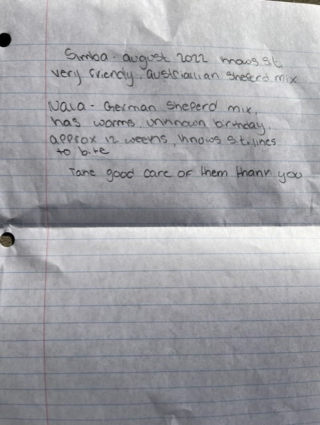 Simba - august 2022 knows sit
very friendly, austrailian sheperd mix
Nala - German sheperd mix,
has worms, unknown birthday,
approx 12 weeks, knows sit, likes
to bite
Take good care of them thank you